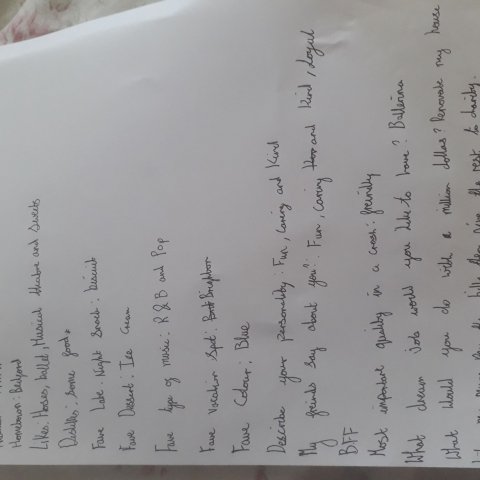 Hometown: Bedford
Likes: Horses, ballet, Musical theatre and Sweets
Dislikes: Some foods
Fave Late Night Snack: biscuit
Fave Dessert: Ice Cream
Fave type of music: R&B and Pop
Fave Vacation Spot: Brighton
Fave Colour: Blue
Describe your personality: Fun, Caring and Kind
My friends say about you?: Fun, Caring and Kind, Loyal
BFF
Most important quality in a crush: freindly
What dream job would you like to have? Ballerina
What would you do with a million dollars? Renovate my house
bills then give the rest to charity.